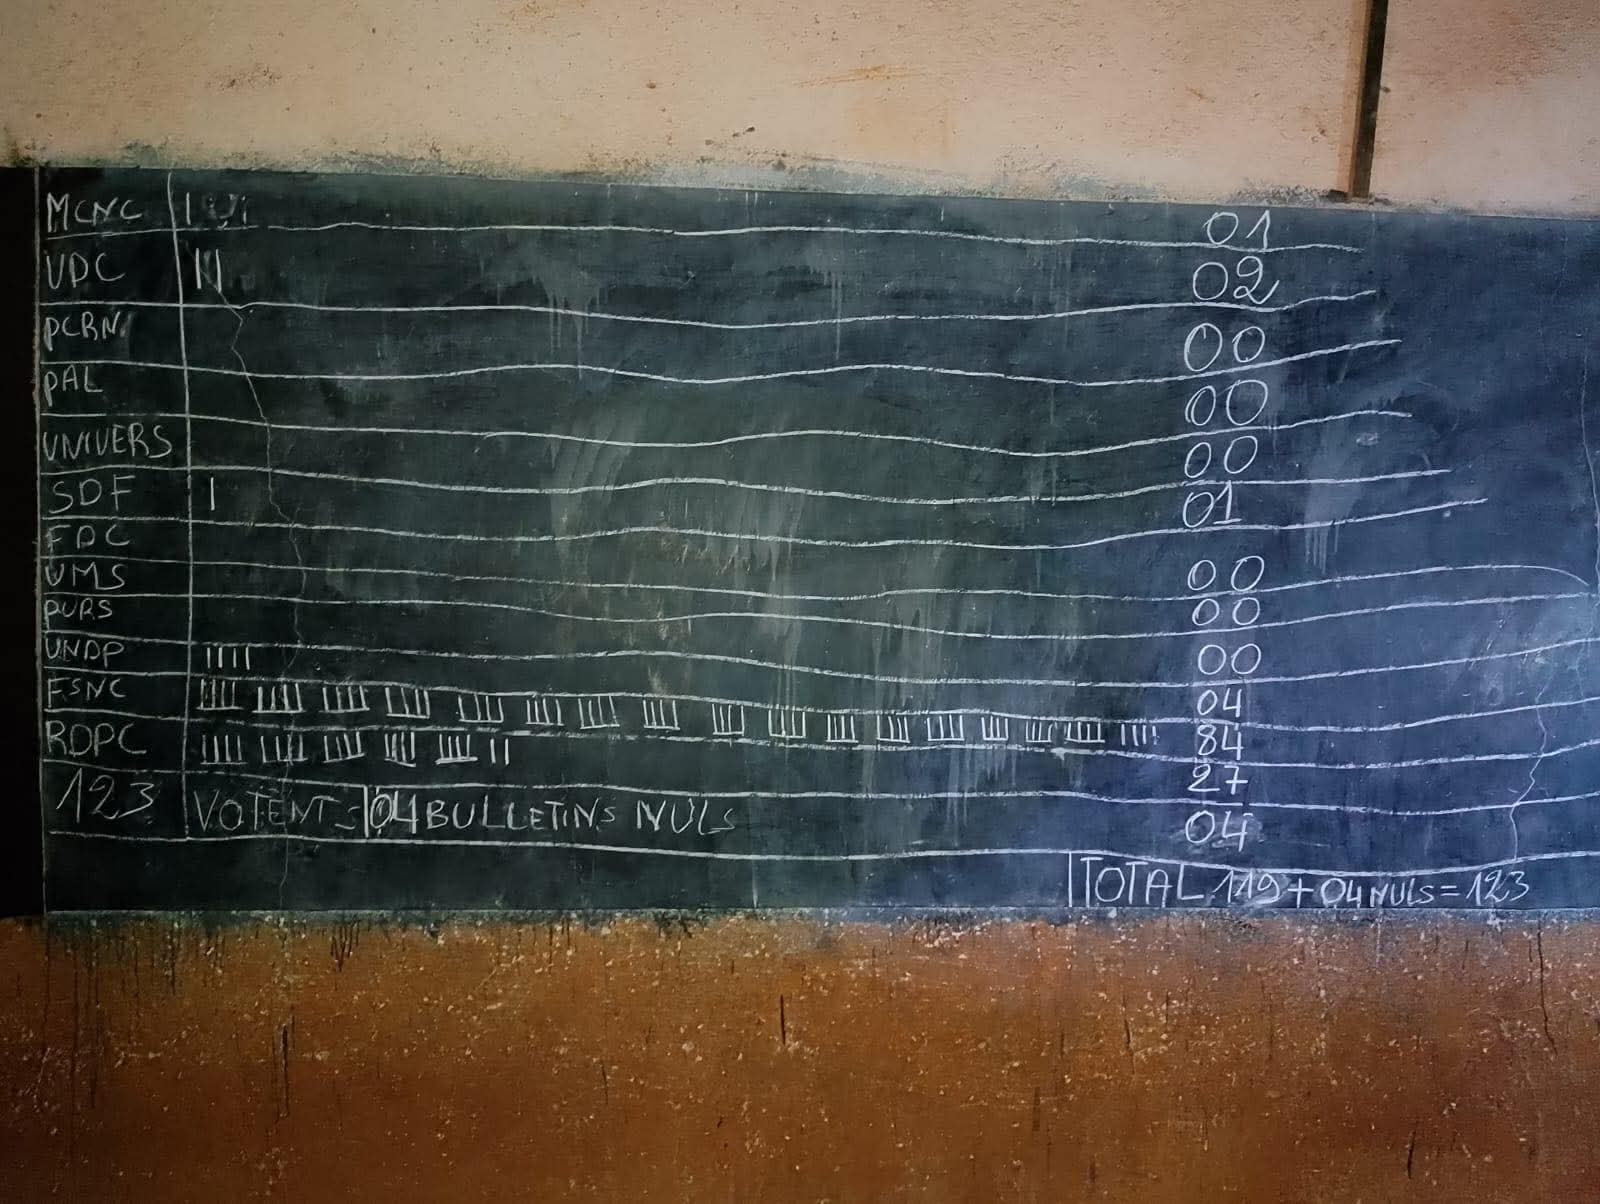 MCNC | 01
UDC ||| 02
PCRN 00
PAL 00
UNIVERS 00
SDF | 01
FDC 00
UMS 00
PURS 00
UNDP |||| 04
FSNC 84
RDPC 27
123 VOTENTS 04 BULLETINS NULS 04
TOTAL 119 + 04 NULS = 123